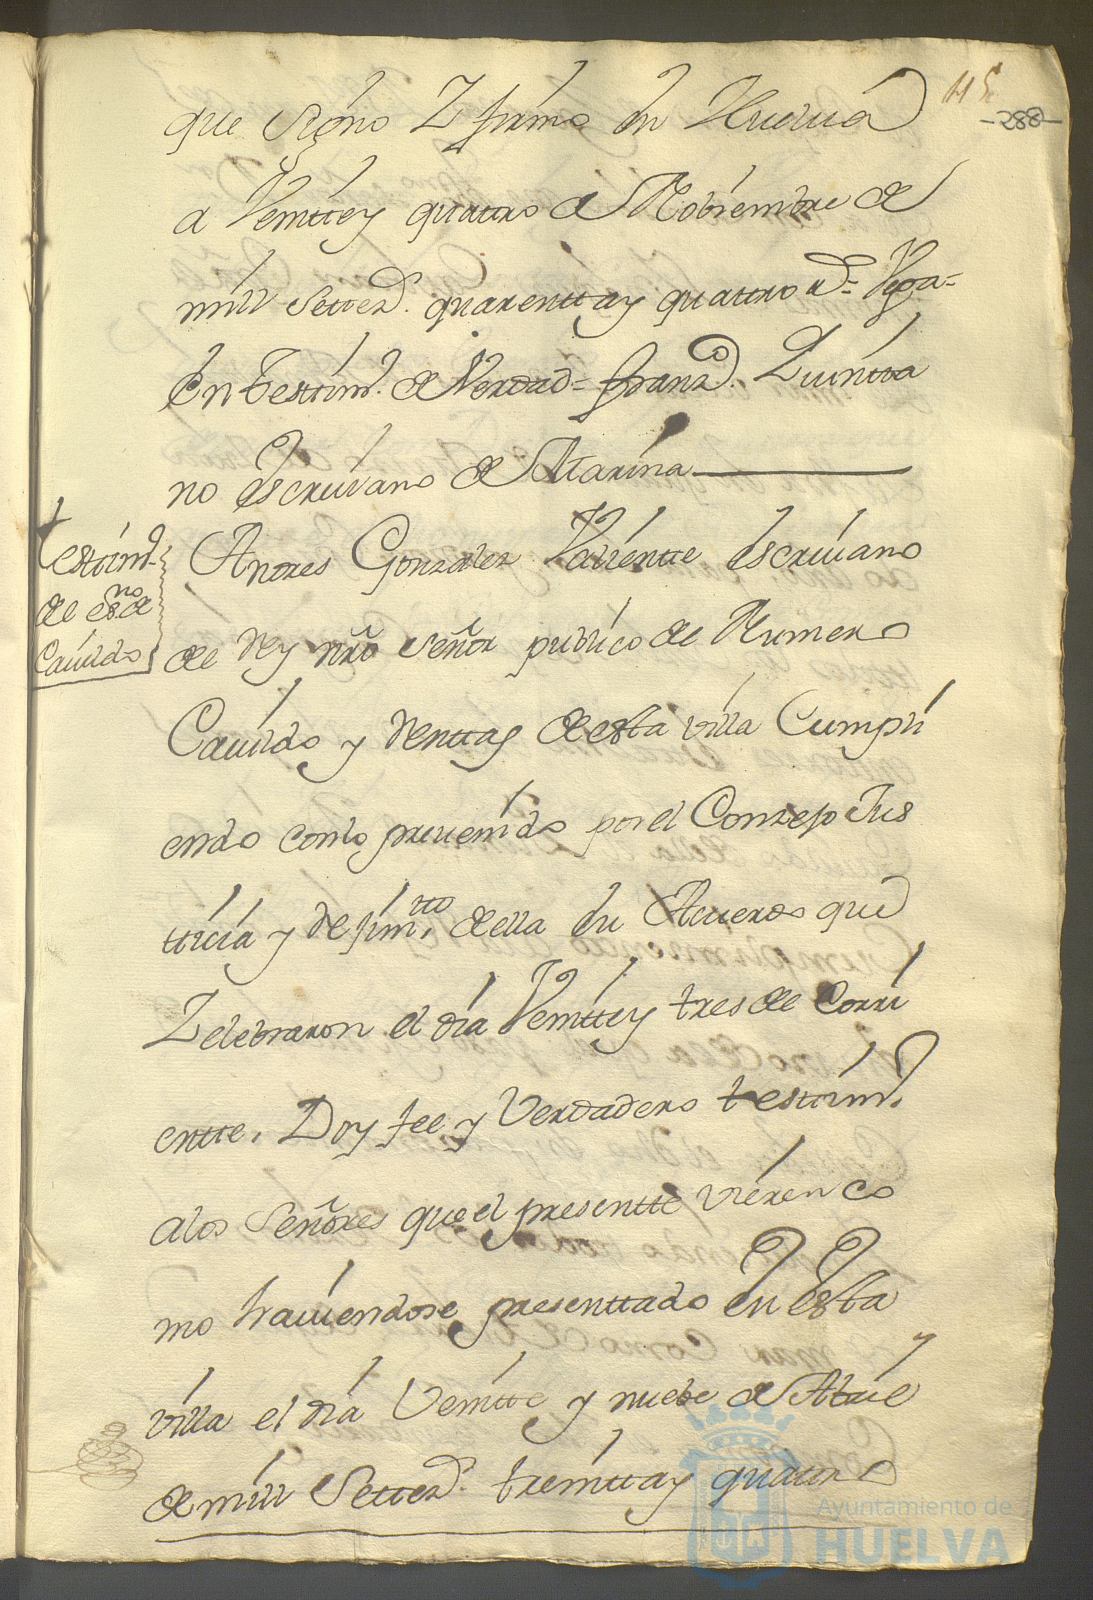 115
-288-
que signo Y firmo en Huelva
a Veintte y quattro de Nobiembre de
mill Settez.s quarentta y quattro a.s= Vega=
En testtim.o de Verdad= Franz.co Quintta
no Escrivano de Marina
testtim.o
de es.no de
Cavildo
Andres Gonzalez Valientte Escrivano
de Rey nro Señor publico de Numero
Cavildo y Renttas de esta villa Cumpli
endo con lo prevenido por el Conzejo Jus
tticia y Rejim.tto della en Acuerdo que
Zelebraron el dia Veintte y tres de Corri
entte. Doy fee y Verdadero testtim.o
alos Señores que el presentte vieren co
mo haviendose presenttado En Esta
villa el dia Veintte y nuebe de Abril
de mill Settez.s treintta y quattro
Ayuntamiento de
HUELVA